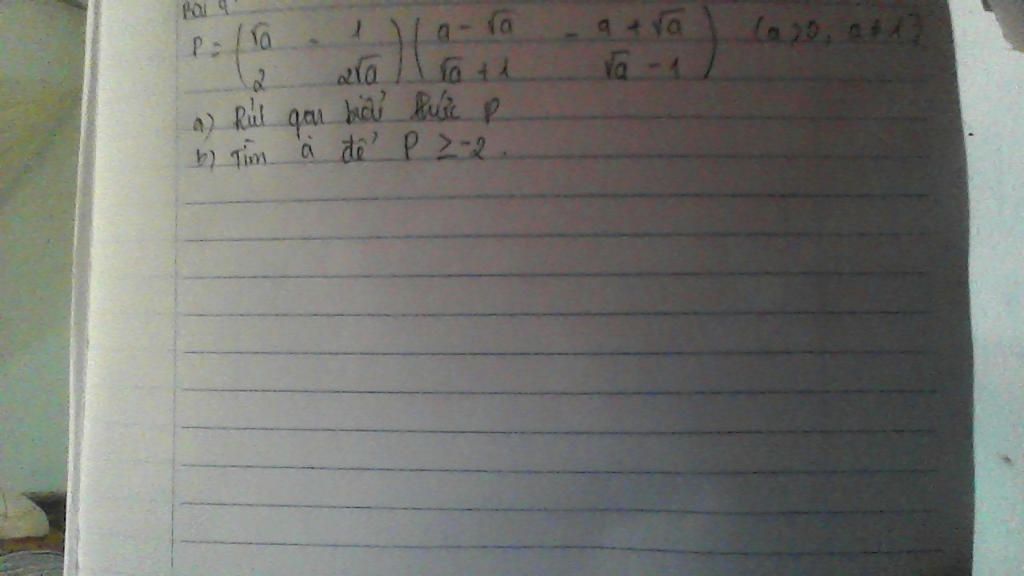 Bài 9
P = (√a/2 - 1/2√a)(a - √a/√a + 1 - a + √a/√a - 1) (a > 0, a ≠ 1)
a) Rút gọn biểu thức P
b) Tìm a để P ≥ -2.